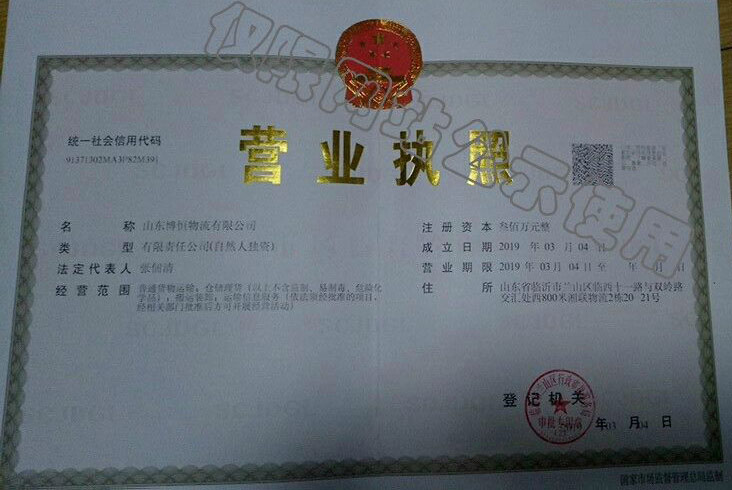 仅限网站公示使用
统一社会信用代码
91371302MA3P82M391
营业执照
名 称 山东博恒物流有限公司
类 型 有限责任公司(自然人独资)
法定代表人 张佃清
经营范围 普通货物运输；仓储理货（以上不含监制、易制毒、危险化
学品）；搬运装卸；运输信息服务（依法须经批准的项目，
经相关部门批准后方可开展经营活动）
注册资本 叁佰万元整
成立日期 2019 年 03 月 04 日
营业期限 2019 年 03 月 04 日 至 年 月 日
住 所 山东省临沂市兰山区临西十一路与双岭路
交汇处西800米湘联物流2栋20 21号
登记机关
审批专用章
年 03 月 04 日
国家市场监督管理总局监制